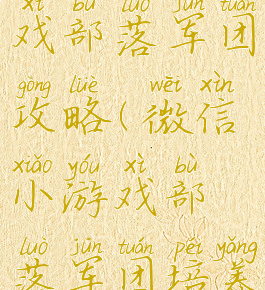 xì bù luò jūn tuán
戏部落军团
gōng lüè wēi xìn
攻略(微信
xiǎo yóu xì bù
小游戏部
luò jūn tuán péi yǎng
落军团培养